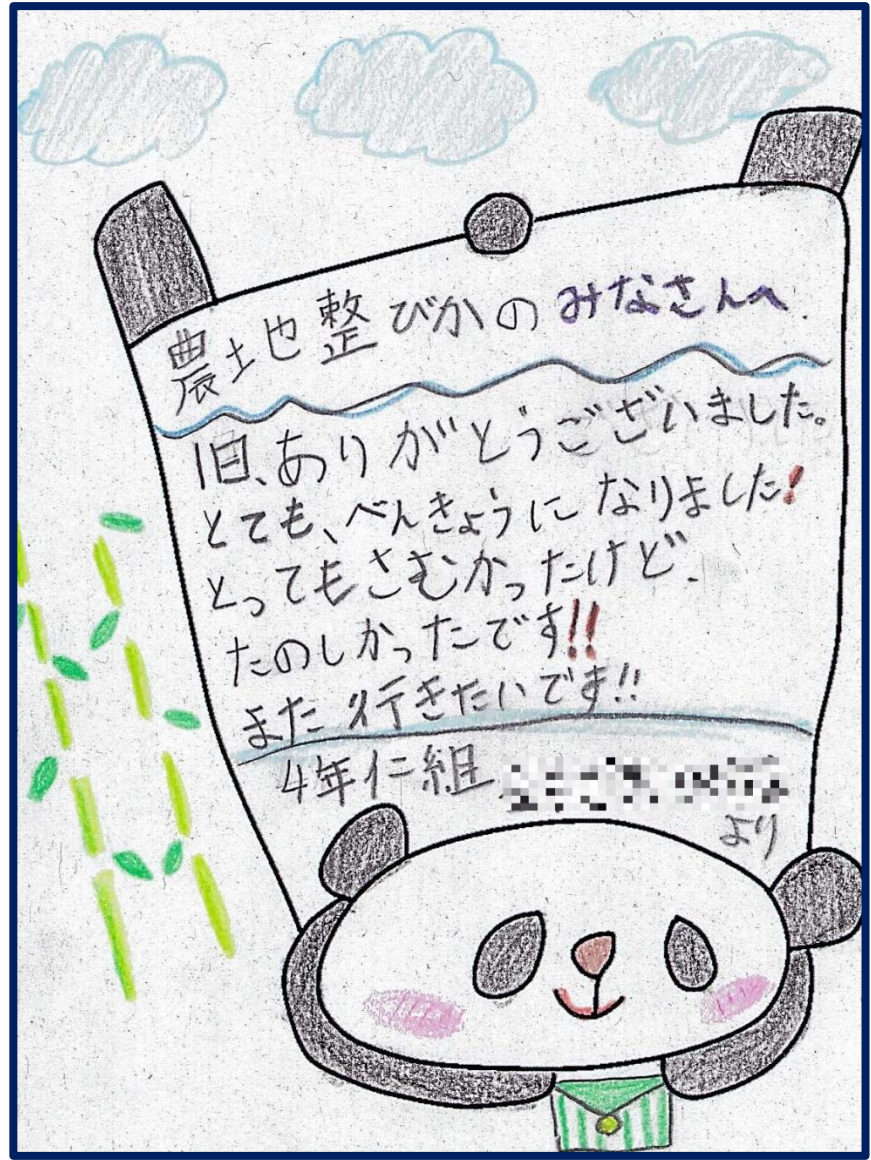 農地整びかのみなさんへ
1日、ありがとうございました。
とても、べんきょうになりました!
とってもさむかったけど、
たのしかったです!!
また行きたいです!!
4年仁組
より